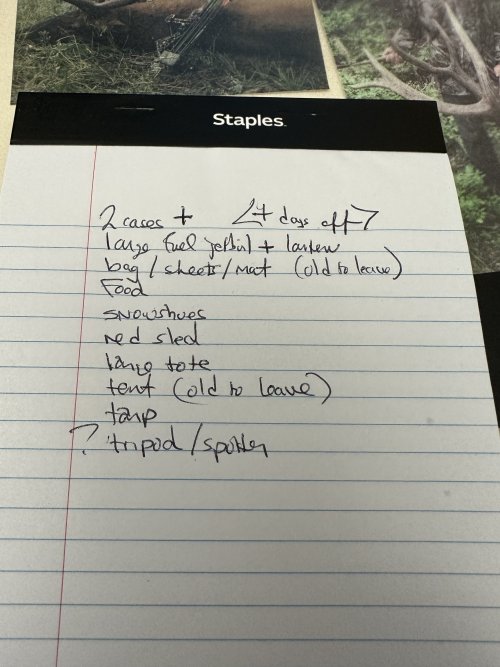 Staples
2 cases + <+ days off>
large fuel jetboil + lantern
bag / sheets / mat (old to leave)
Food
snowshoes
red sled
large tote
tent (old to leave)
tarp
? tripod / spotter